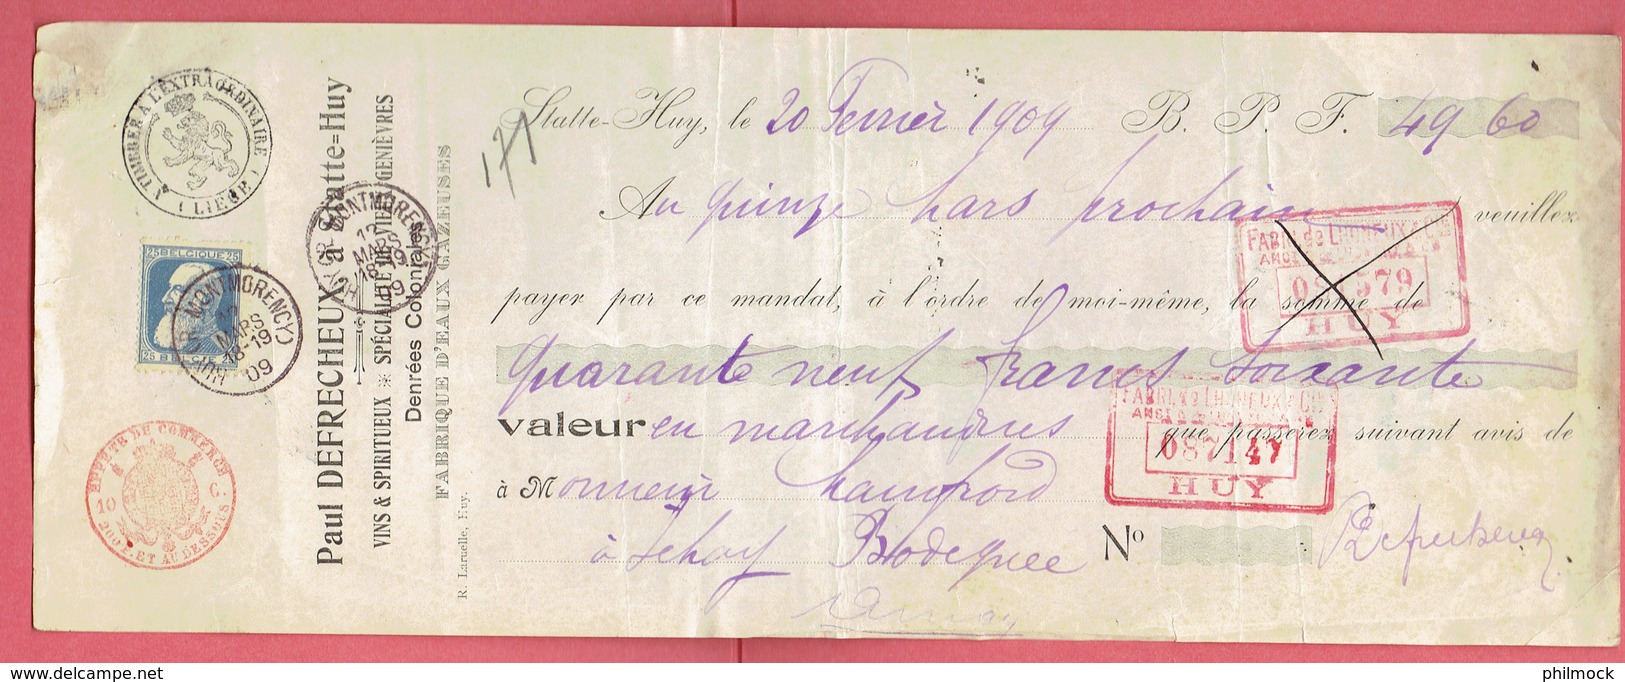 TIMBRE A L'EXTRAORDINAIRE
LIEGE
25 BELGIQUE 25
25 BELGIË 25
MONTMORENCY
12
MARS
18-19
09
MONTMORENCY
12
MARS
18-19
09
EFFETS DE COMMERCE
10 C.
200 F. ET AU DESSOUS
Paul DEFRECHEUX à Statte=Huy
VINS & SPIRITUEUX SPÉCIALITÉ DE VIEUX GENIÈVRES
Denrées Coloniales
FABRIQUE D'EAUX GAZEUSES
R. Laruelle, Huy.
171
Statte-Huy, le 20 Fevrier 1909 B. P. F. 49 60
Au quinze Mars prochain veuillez
payer par ce mandat, à l'ordre de moi-même, la somme de
quarante neuf francs soixante
valeur en marchandises que passerez suivant avis de
à Monsieur
à Bodegnée
No
FABRI. de LHONEUX & Cie
579
HUY
FABRI. de LHONEUX & Cie
087147
HUY
philmock